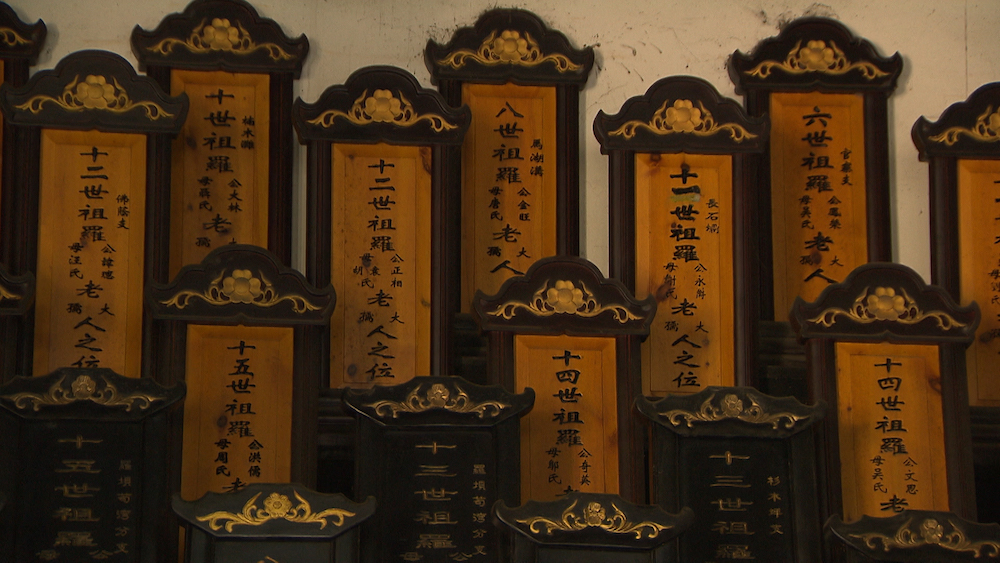 十世祖羅
公大林
老
八世祖羅
馬湖溝
公金旺
母唐氏
老大
人
六世祖羅
公鳳榮
母吳氏
老大
人
十二世祖羅
佛蔭支
母汪氏
老
人之位
十二世祖羅
公正相
母袁胡氏
老大
人之位
十一世祖羅
長石塥
母謝氏
老大
人之位
十五世祖羅
公洪儒
母周氏
老
十四世祖羅
公奇英
母鄒氏
老
十四世祖羅
公文恩
母吳氏
老
十五世祖羅
羅壩苟灣分支
十三世祖羅
羅壩苟灣分支
公
十三世祖羅
杉木坪支